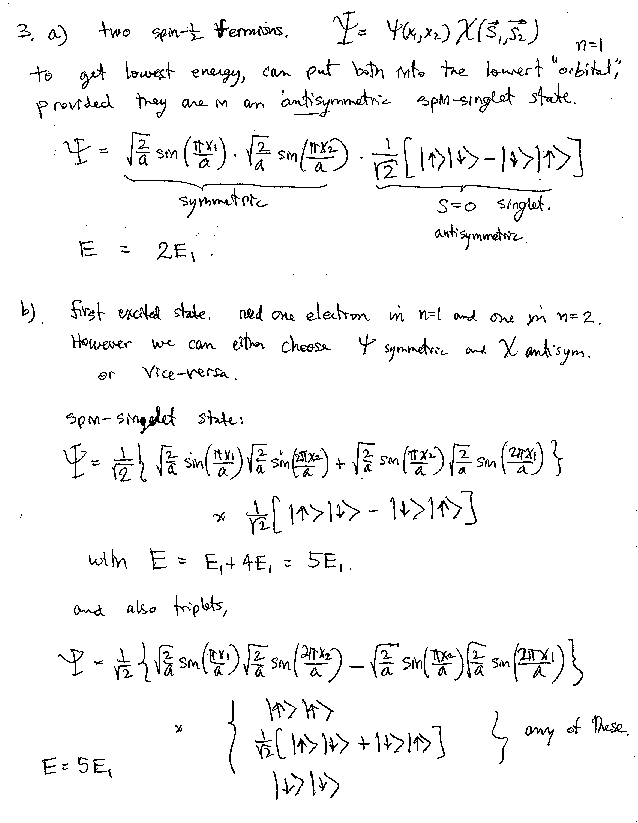 3. a) two spin-½ fermions. Ψ = ψ(x₁,x₂) χ(S⃗₁,S⃗₂)
n=1
to get lowest energy, can put both into the lowest "orbital",
provided they are in an antisymmetric spin-singlet state.
∴ Ψ = √(2/a) sin(πx₁/a) · √(2/a) sin(πx₂/a) · 1/√2 [|↑>|↓> - |↓>|↑>]
symmetric S=0 singlet.
antisymmetric.
E = 2E₁.
b). first excited state. need one electron in n=1 and one in n=2.
However we can either choose ψ symmetric and χ antisym.
or vice-versa.
spin-singlet state:
Ψ = 1/√2 { √(2/a) sin(πx₁/a) √(2/a) sin(2πx₂/a) + √(2/a) sin(πx₂/a) √(2/a) sin(2πx₁/a) }
× 1/√2 [|↑>|↓> - |↓>|↑>]
with E = E₁+4E₁ = 5E₁.
and also triplets,
Ψ = 1/√2 { √(2/a) sin(πx₁/a) √(2/a) sin(2πx₂/a) - √(2/a) sin(πx₂/a) √(2/a) sin(2πx₁/a) }
× { |↑>|↑>
1/√2 [|↑>|↓> + |↓>|↑>] } any of these.
E=5E₁
|↓>|↓>